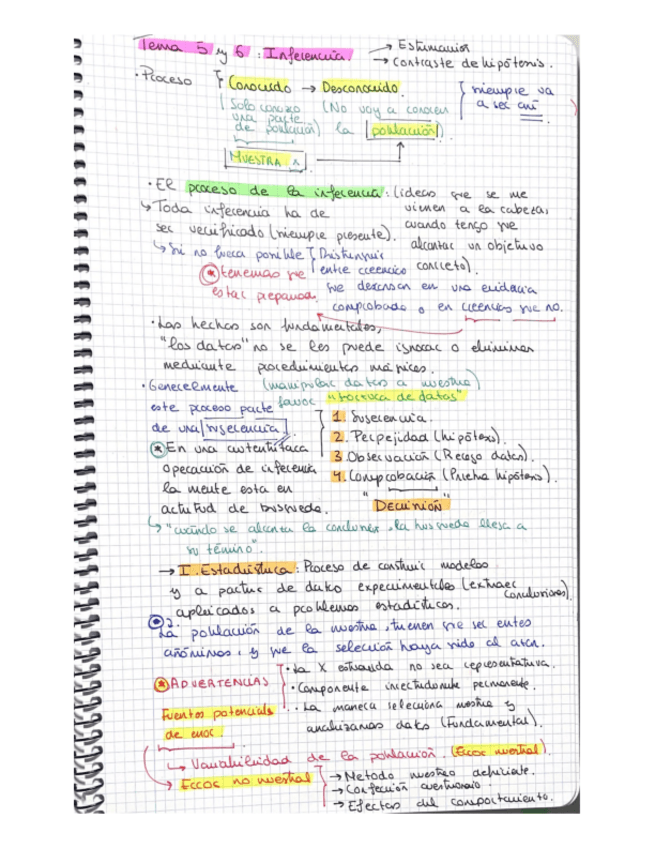 Tema 5 y 6 : Inferencia → Estimación
→ contraste de hipótesis.
· Proceso { Conocido → Desconocido. } siempre va
a ser así
(Solo conozco una parte de población) (No voy a conocer la población)
MUESTRA
· El proceso de la inferencia: (ideas que se me
vienen a la cabeza,
cuando tengo que
alcanzar un objetivo
concreto).
↳ Toda inferencia ha de
ser verificado (siempre presente).
↳ Si no fuera posible { Distinguir
entre creencias
que descansan en una evidencia
comprobada o en creencias que no.
* tenemos que
estar preparad
· Los hechos son fundamentales,
"los datos" no se les puede ignorar o eliminar
mediante procedimientos mágicos.
(manipular datos a nuestro
favor "tortura de datos"
· Generalmente
este proceso parte
de una sugerencia.
1. Sugerencia.
2. Perpejidad (hipótesis).
3. Observación (Recogo datos).
4. Comprobación (Prueba hipótesis).
"DECISIÓN"
* En una auténtica
operación de inferencia
la mente esta en
actitud de busqueda.
↳ "cuándo se alcanza la conclusión, la busqueda llega a
su término".
→ I. Estadística: Proceso de construir modelos
y a partir de datos experimentales (extraer conclusiones)
aplicados a problemas estadísticos.
La población de la muestra, tienen que ser entes
anónimos, y que la selección haya sido al azar.
* ADVERTENCIAS
· La X extraida no sea representativa.
· Componente incertidumbre permanente.
· La manera selecciona muestra y
analizamos datos (Fundamental).
Fuentes potenciales
de error.
↳ Variabilidad de la población. (Error muestral).
↳ Error no muestral
→ Metodo muestreo deficiente.
→ Confección cuestionario
→ Efectos del comportamiento.